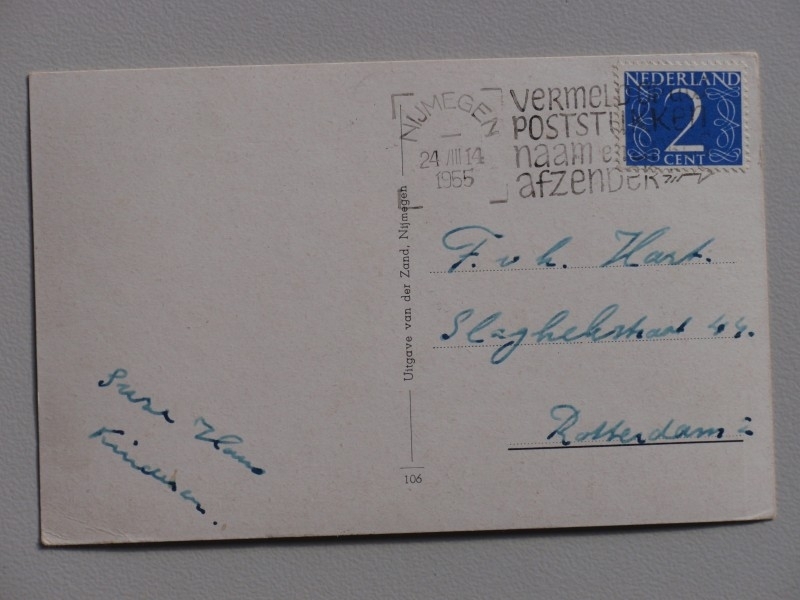 NIJMEGEN
24 VIII 14
1955
VERMELD
POSTSTUKKEN
naam en
afzender
NEDERLAND
2
CENT
Uitgave van der Zand, Nijmegen
106
F. v. h. Hart.
Slaghekstraat 44.
Rotterdam z
Suze Hans
Kinderen.